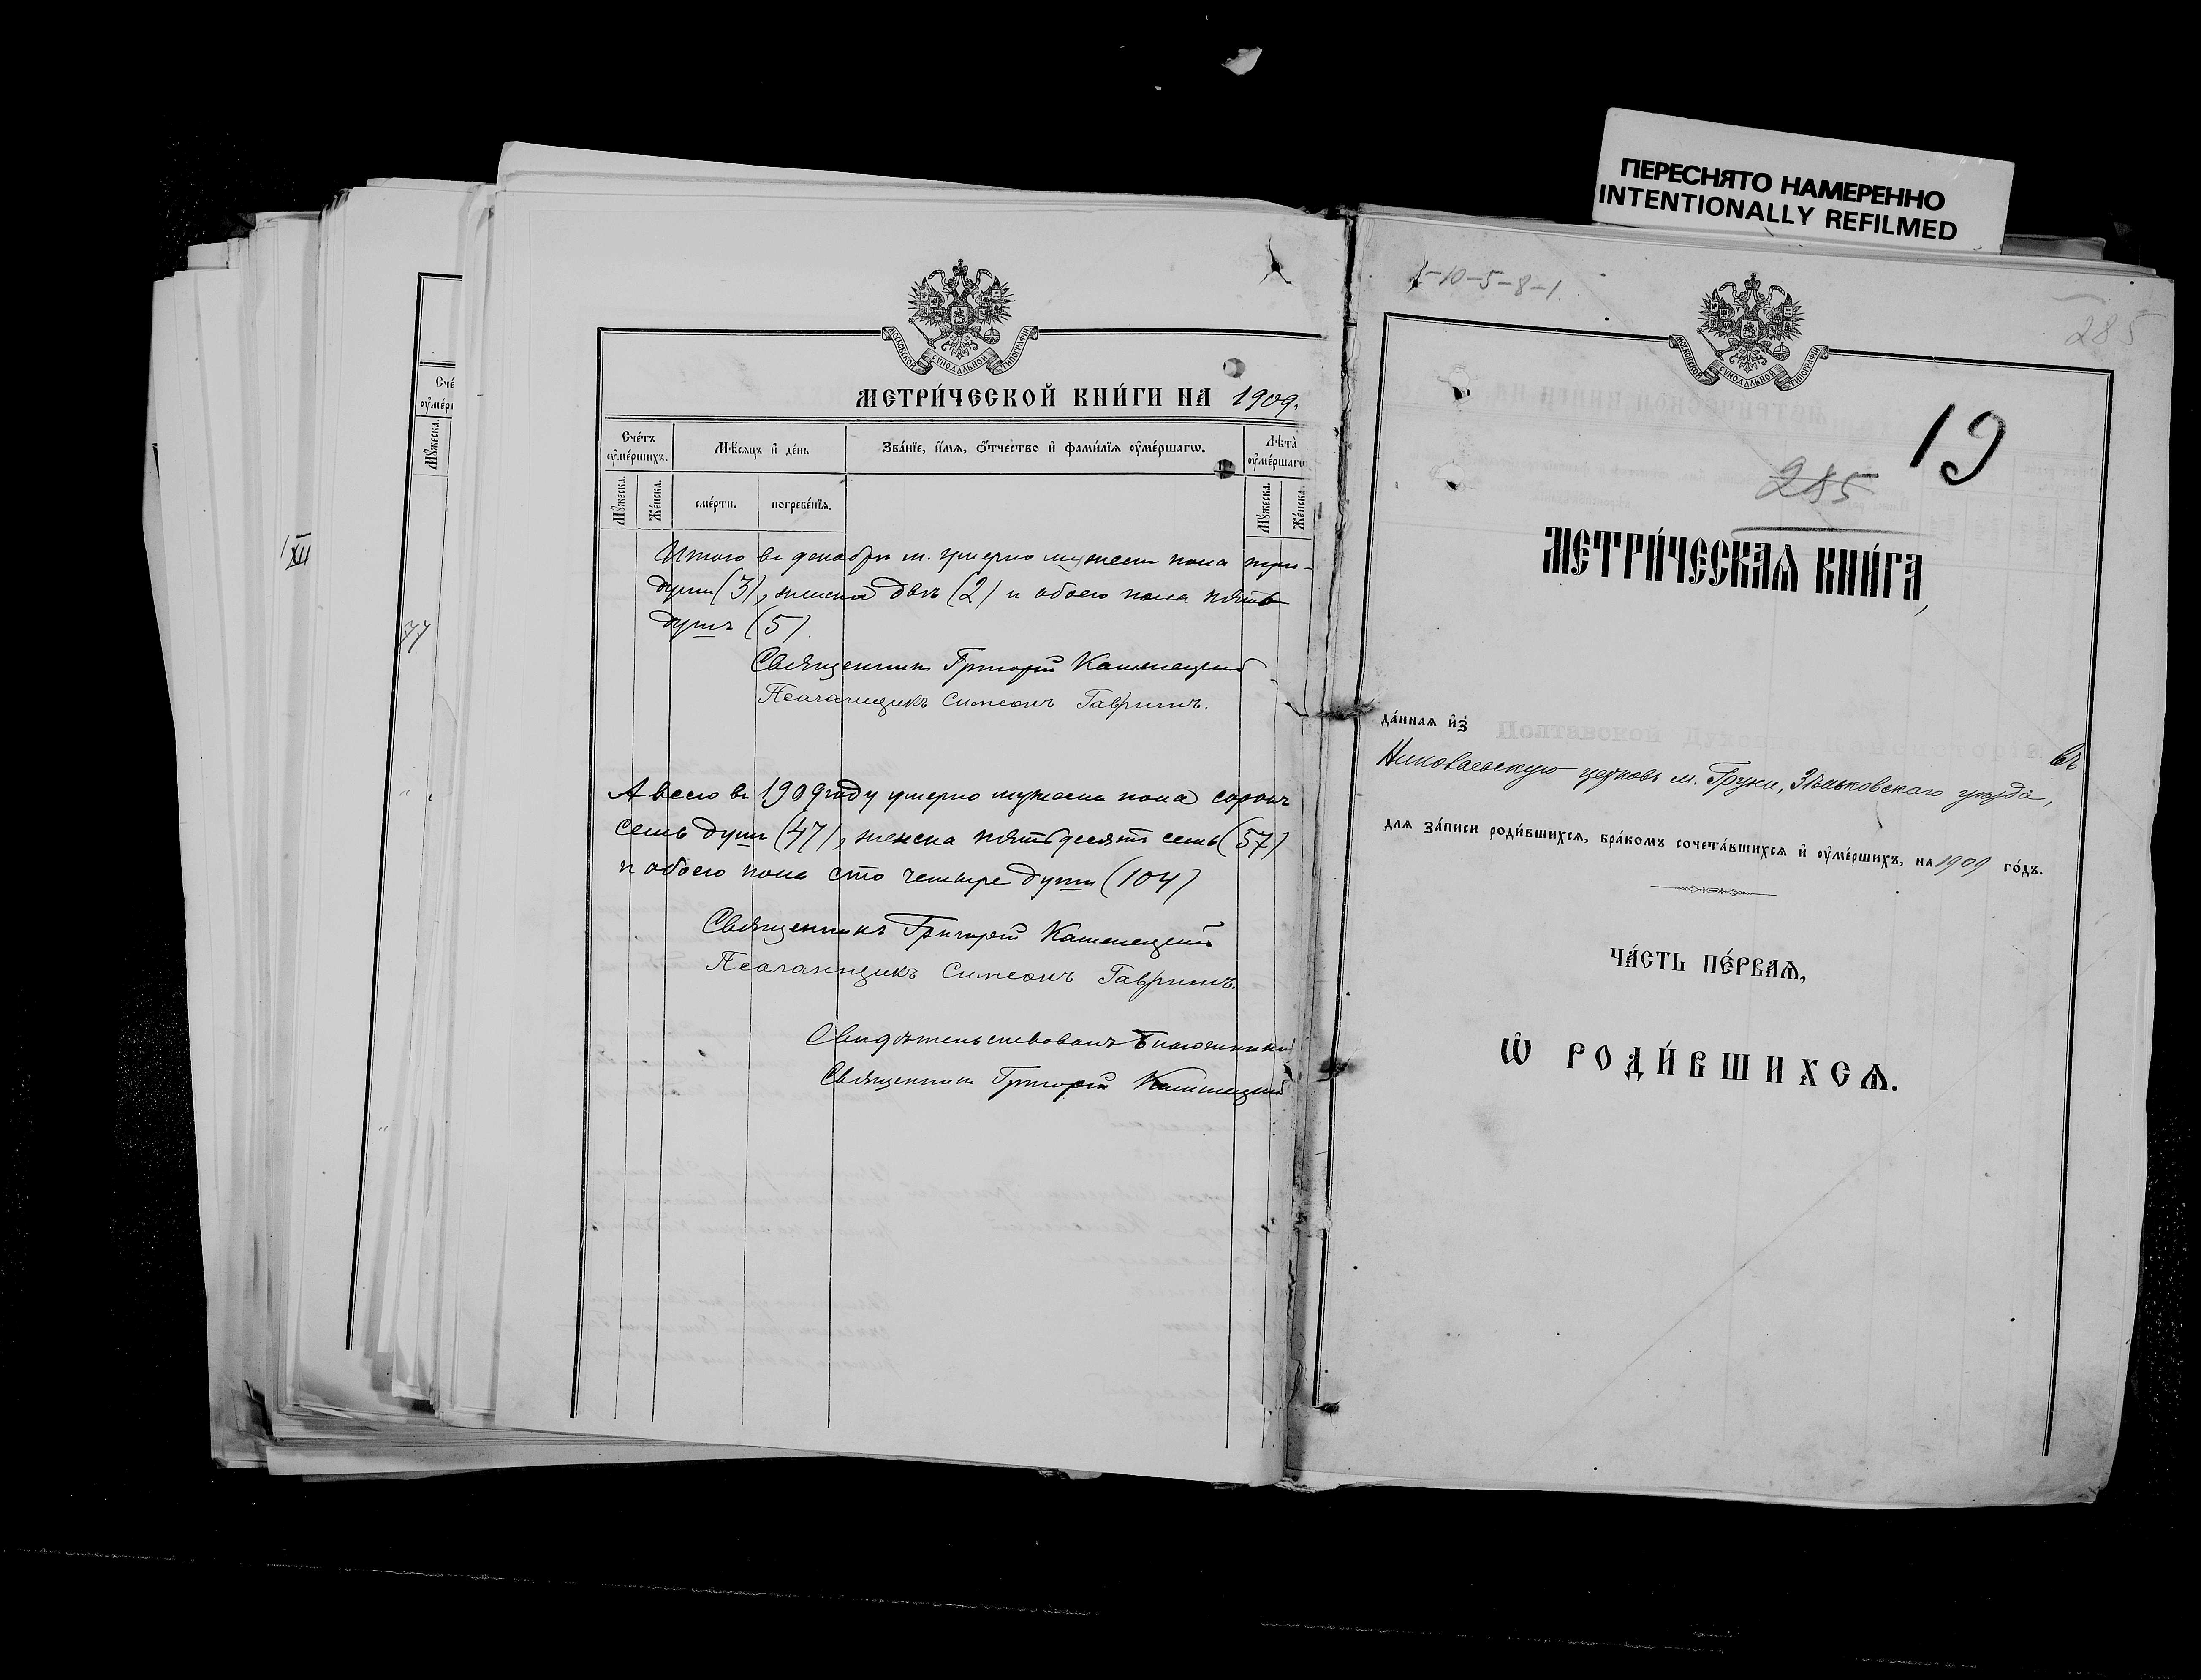 ПЕРЕСНЯТО НАМЕРЕННО
INTENTIONALLY REFILMED
МОСКОВСКОЙ СУНОДАЛЬНОЙ ТИПОГРАФІИ
МЕТРИ́ЧЕСКОЙ КНИ́ГИ НА 1909.
Сче́тъ ᲂу҆ме́ршихъ.
Мѣ́сяцъ и҆ де́нь
Зва́нїе, и҆́мѧ, ѻ҆́тчество и҆ фами́лїѧ ᲂу҆ме́ршагѡ.
Лѣта̀ ᲂу҆ме́ршагѡ
Мꙋ́жеска.
Же́нска.
сме́рти.
погребе́нїѧ.
Мꙋ́жеска.
Же́нска.
Итого въ декабрѣ м. умерло мужеска пола три
души (3), женска двѣ (2) и обоего пола пять
душъ (5)
Священникъ Григорій Каменецкій
Псаломщикъ Симеонъ Гавришъ.
А всего въ 1909 году умерло мужеска пола сорокъ
семь душъ (47), женска пятьдесятъ семь (57)
и обоего пола сто четыре души (104)
Священникъ Григорій Каменецкій
Псаломщикъ Симеонъ Гавришъ.
Свидѣтельствовалъ Благочинный
Священникъ Григорій Каменецкій
Сче́
ᲂу҆ме́р
Мꙋ́жеска.
XII
77
1-10-5-8-1
285
МОСКОВСКОЙ СУНОДАЛЬНОЙ ТИПОГРАФІИ
19
285
МЕТРИ́ЧЕСКАѦ КНИ́ГА,
да́ннаѧ и҆з̾ Полтавской Духовной Консисторіи въ
Николаевскую церковь м. Груни, Зѣньковскаго уѣзда,
длѧ за́писи роди́вшихсѧ, бра́комъ сочета́вшихсѧ и҆ ᲂу҆ме́ршихъ, на 1909 го́дъ.
ЧА́СТЬ ПЕ́РВАѦ,
Ѽ РОДИ́ВШИХСѦ.